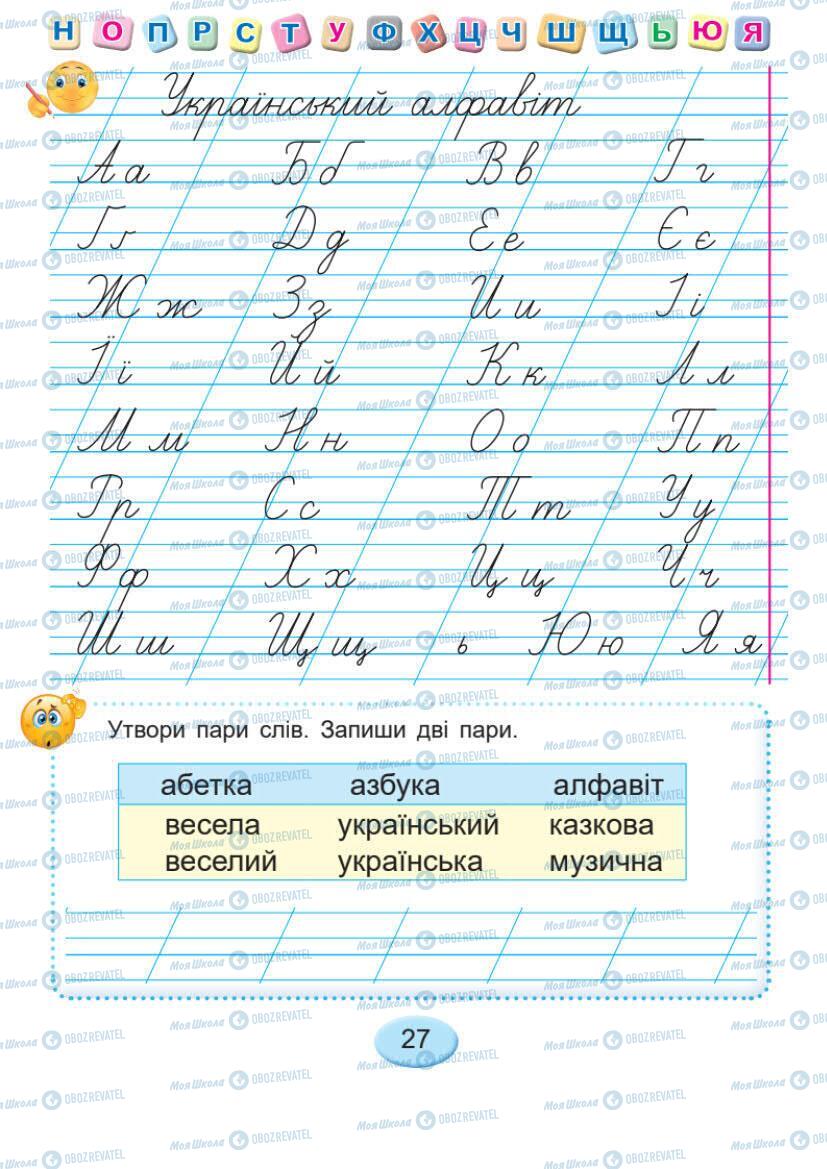 Н О П Р С Т У Ф Х Ц Ч Ш Щ Ь Ю Я
Український алфавіт
А а Б б В в Г г
Ґ ґ Д д Е е Є є
Ж ж З з И и І і
Ї ї Й й К к Л л
М м Н н О о П п
Р р С с Т т У у
Ф ф Х х Ц ц Ч ч
Ш ш Щ щ ь Ю ю Я я
Утвори пари слів. Запиши дві пари.
абетка азбука алфавіт
весела український казкова
веселий українська музична
27
Моя Школа OBOZREVATEL